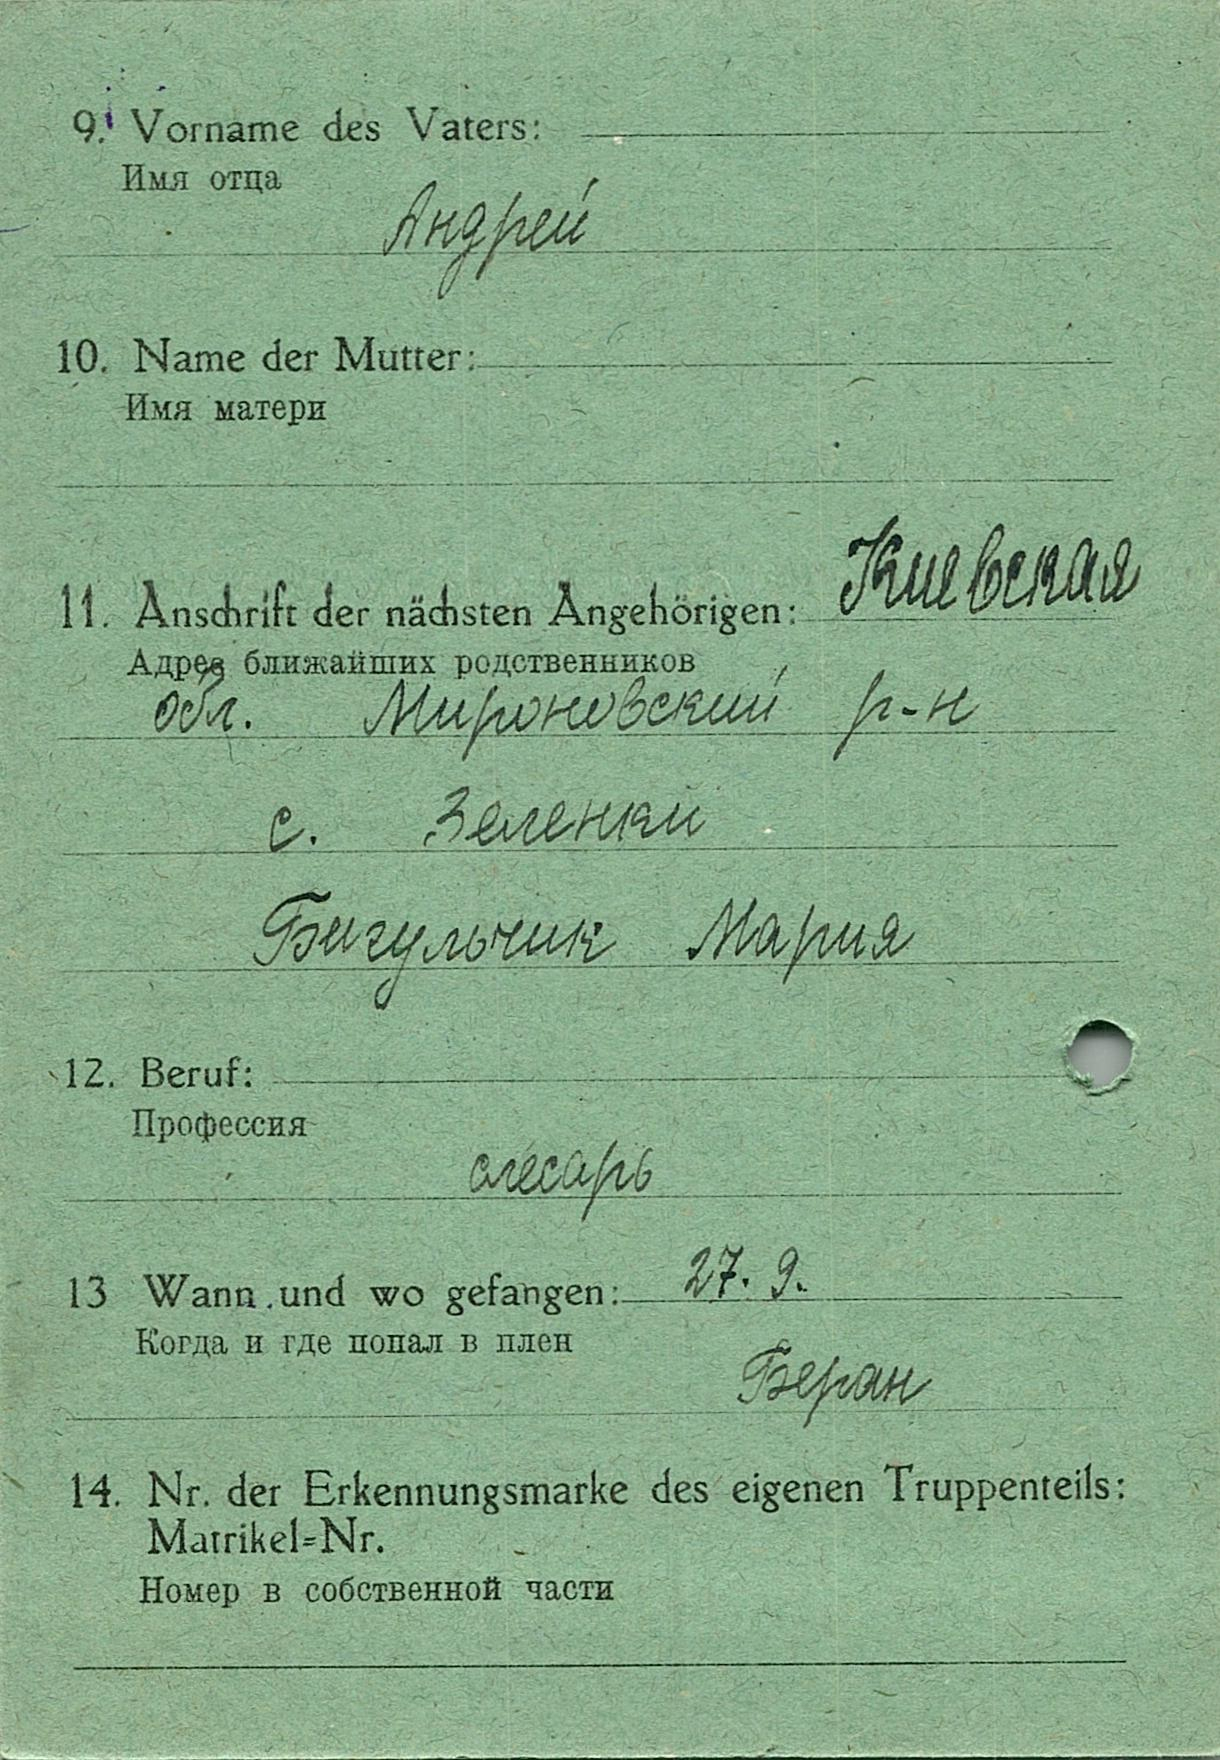 9. Vorname des Vaters:
Имя отца
Андрей
10. Name der Mutter:
Имя матери
11. Anschrift der nächsten Angehörigen: Киевская
Адрес ближайших родственников
обл. Мироновский р-н
с. Зеленки
Бигульчик Мария
12. Beruf:
Профессия
слесарь
13 Wann und wo gefangen: 27. 9.
Когда и где попал в плен
Беран
14. Nr. der Erkennungsmarke des eigenen Truppenteils:
Matrikel=Nr.
Номер в собственной части